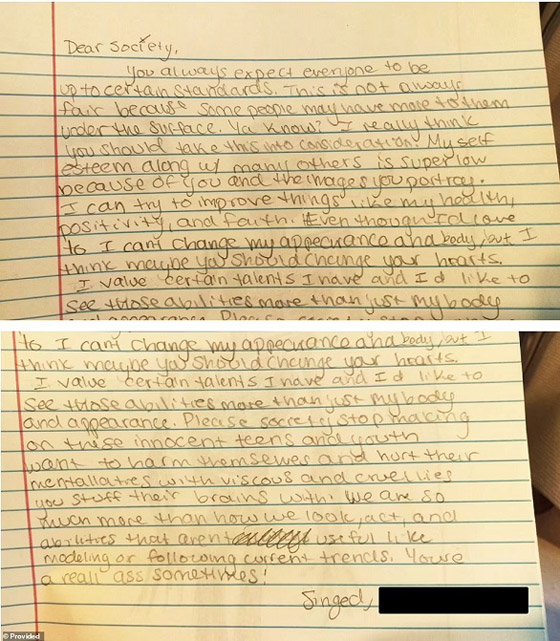 Dear Society,
You always expect everyone to be
up to certain standards. This is not always
fair because some people may have more to them
under the surface. Ya know? I really think
you should take this into consideration. My self
esteem along w/ many others is super low
because of you and the images you portray.
I can try to improve things like my health,
positivity, and faith. Even though I'd love
to I cant change my appearance and body, but I
think maybe you should change your hearts.
I value certain talents I have and I'd like to
see those abilities more than just my body
to I cant change my appearance and body, but I
think maybe you should change your hearts.
I value certain talents I have and I'd like to
see those abilities more than just my body
and appearance. Please society stop making
on these innocent teens and youth
want to harm themselves and hurt their
mentallaties with viscous and cruel lies
you stuff their brains with! We are so
much more than how we look, act, and
abilities that arent useful like
modeling or following current trends. Youre
a reall ass sometimes!
Singed,
© Provided